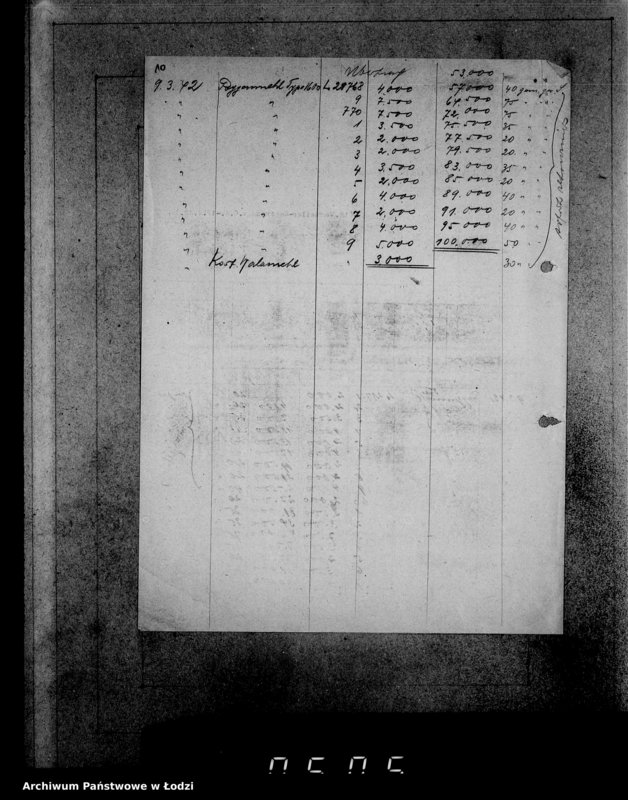 10
Übertrag 53.000
9.3.42 Roggenmehl Type 1800 L 28768 4.000 57.000 40
" " 9 7.500 64.500 75 " "
" " 770 7.500 72.000 75 " "
" " 1 3.500 75.500 35 " "
" " 2 2.000 77.500 20 " "
" " 3 2.000 79.500 20 " "
" " 4 3.500 83.000 35 " "
" " 5 2.000 85.000 20 " "
" " 6 4.000 89.000 40 " "
" " 7 2.000 91.000 20 " "
" " 8 4.000 95.000 40 " "
" " 9 5.000 100.000 50 "
" 3.000 30 "
Archiwum Państwowe w Łodzi